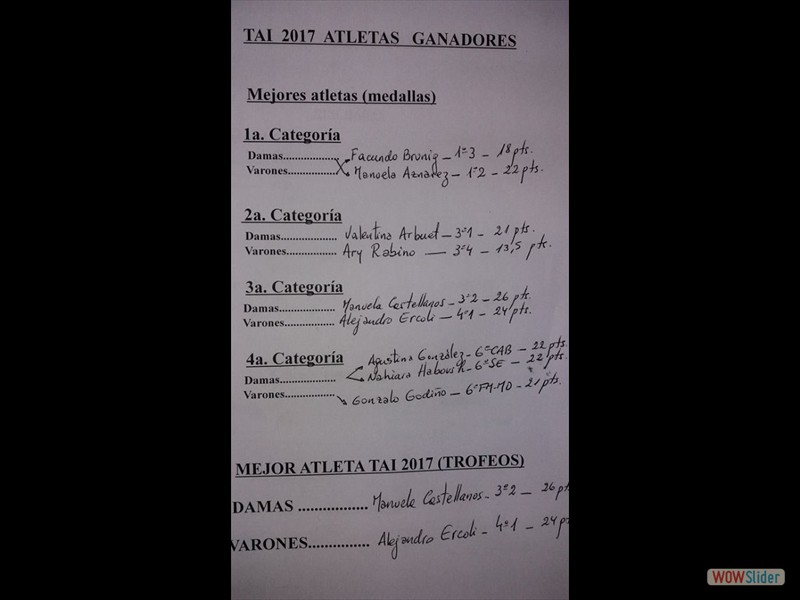 TAI 2017 ATLETAS GANADORES
Mejores atletas (medallas)
1a. Categoría
Damas.................. Facundo Brunig – 1º3 – 18 pts.
Varones................ Manuela Aznarez – 1º2 – 22 pts.
2a. Categoría
Damas.................. Valentina Arbuet – 3º1 – 21 pts.
Varones................ Ary Rabino — 3º4 – 13,5 pts.
3a. Categoría
Damas.................. Manuela Castellanos – 3º2 – 26 pts.
Varones................ Alejandro Ercoli – 4º1 – 24 pts.
4a. Categoría
Agustina González – 6º CAB – 22 pts.
Damas.................. Nahiara – 6º SE – 22 pts.
Varones................ Gonzalo Godiño – 6º FM-MD – 21 pts.
MEJOR ATLETA TAI 2017 (TROFEOS)
DAMAS .................. Manuela Castellanos – 3º2 – 26 pt
VARONES............... Alejandro Ercoli – 4º1 – 24 pt
WOWSlider